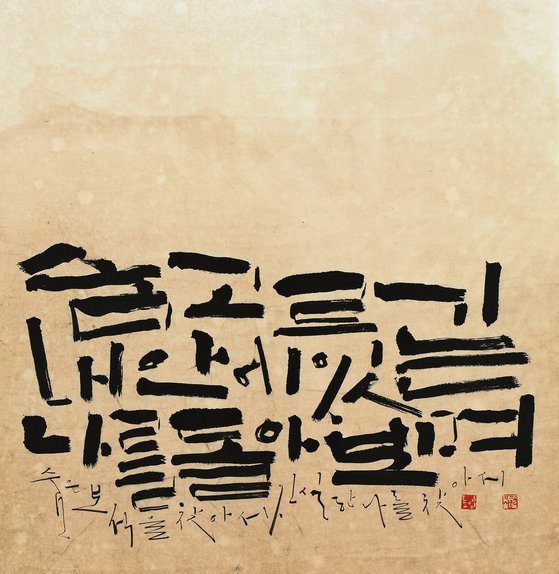 숨고르기
내안에 있는
나를 돌아보며
숨은 보석을 찾아서, 진실한 나를 찾아서